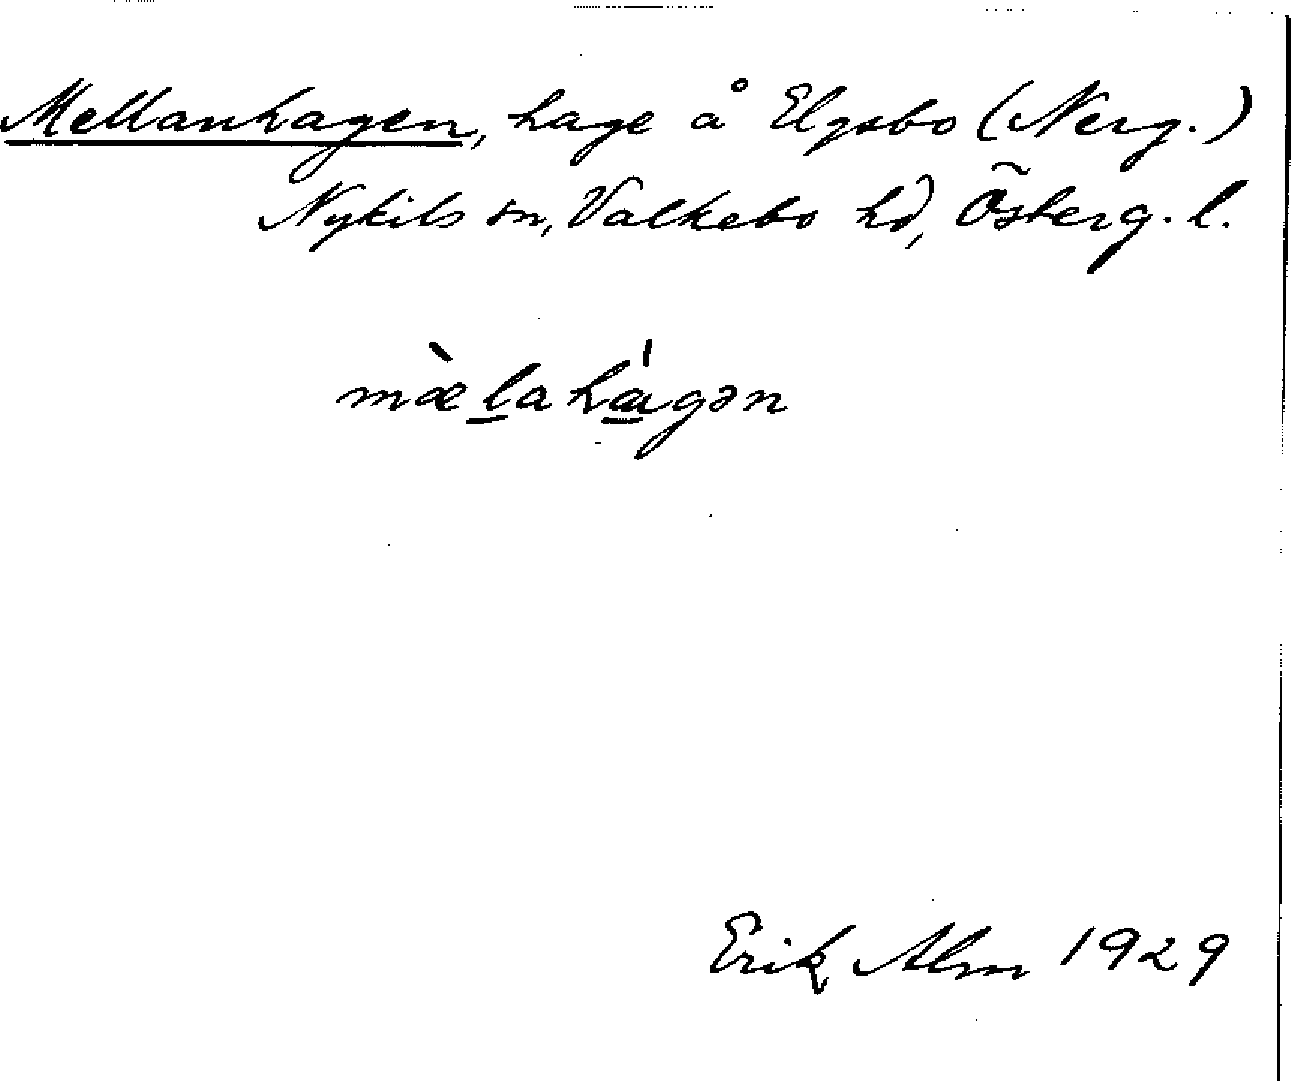 Mellanhagen, hage å Elgsbo (Nerg.)
Nykils sn, Valkebo hd, Österg. l.
mæ̀lahágən
Erik Alm 1929